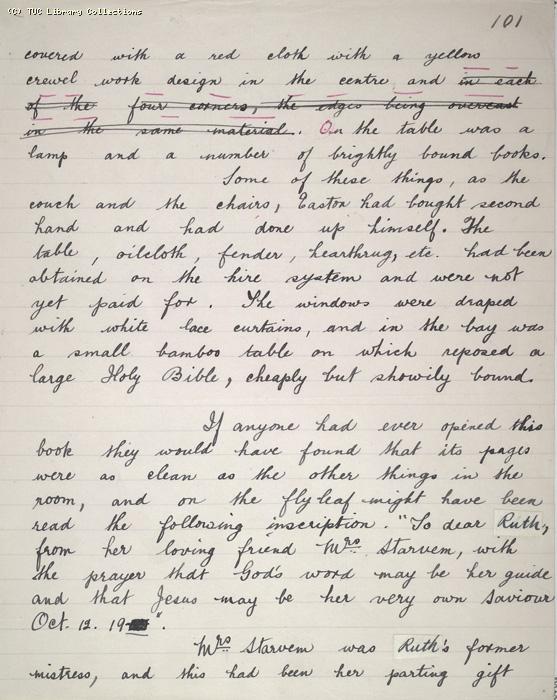 (C) TUC Library Collections
101
covered with a red cloth with a yellow
crewel work design in the centre and in each
of the four corners, the edges being overcast
in the same material. On the table was a
lamp and a number of brightly bound books.
Some of these things, as the
couch and the chairs, Easton had bought second
hand and had done up himself. The
table, oilcloth, fender, hearthrug, etc. had been
obtained on the hire system and were not
yet paid for. The windows were draped
with white lace curtains, and in the bay was
a small bamboo table on which reposed a
large Holy Bible, cheaply but showily bound.
If anyone had ever opened this
book they would have found that its pages
were as clean as the other things in the
room, and on the flyleaf might have been
read the following inscription. "To dear Ruth,
from her loving friend Mrs Starvem, with
the prayer that God's word may be her guide
and that Jesus may be her very own Saviour
Oct. 12. 19".
Mrs Starvem was Ruth's former
mistress, and this had been her parting gift